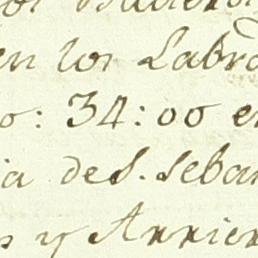 en los Labro
o: 34:00 e
ia de S. Seba
s y Arrier